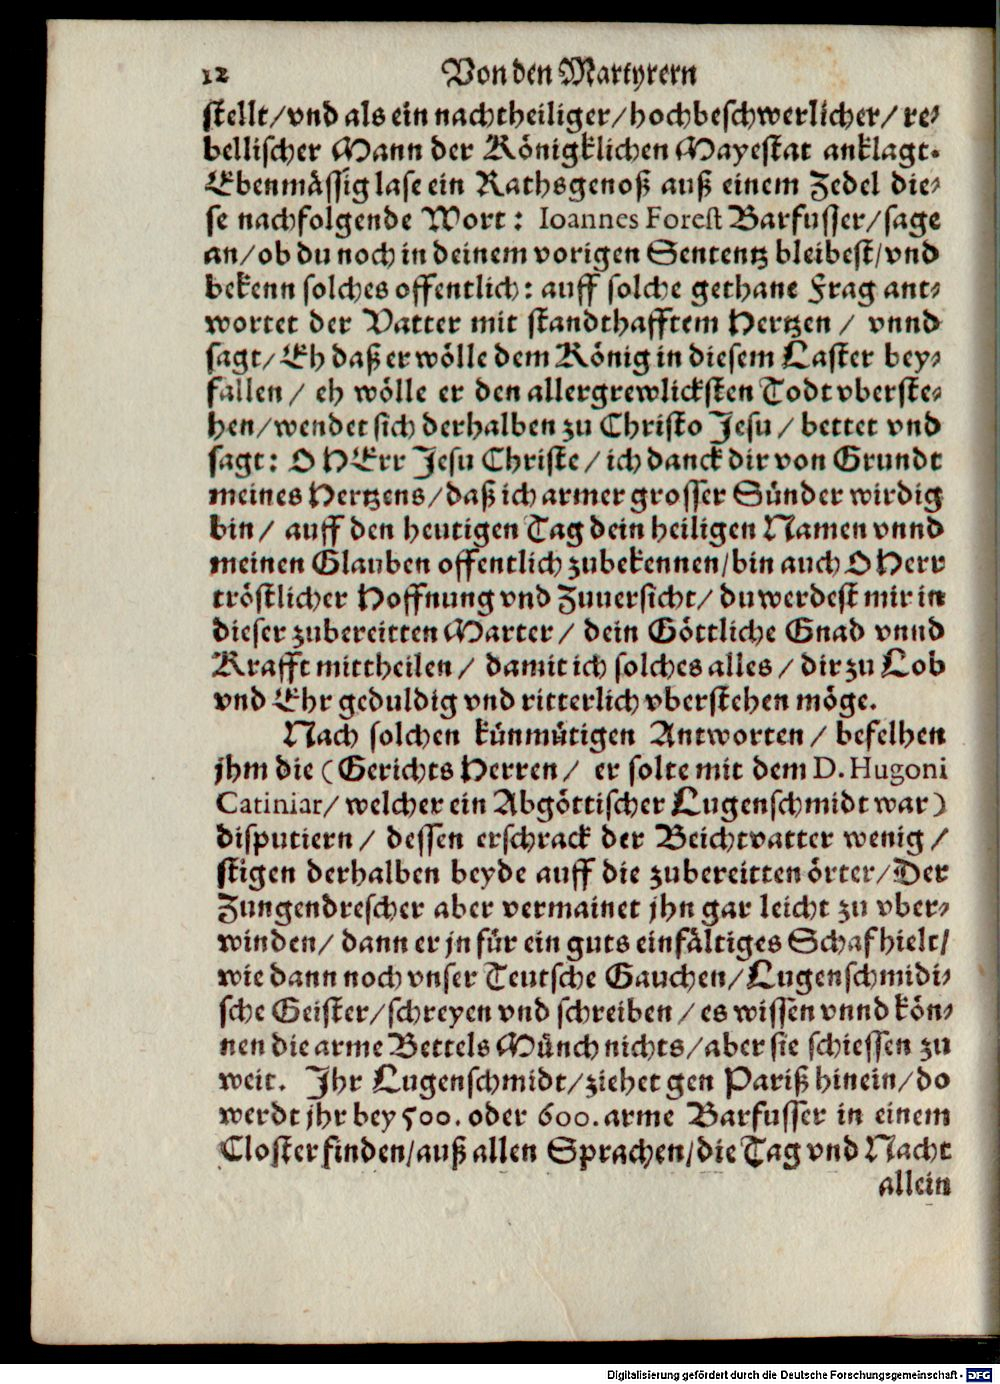 12 Von den Martyrern
stellt/vnd als ein nachtheiliger/hochbeschwerlicher/re-
bellischer Mann der Königklichen Mayestat anklagt.
Ebenmässig lase ein Rathsgenoß auß einem Zedel die-
se nachfolgende Wort: Ioannes Forest Barfusser/sage
an/ob du noch in deinem vorigen Sententz bleibest/vnd
bekenn solches offentlich: auff solche gethane Frag ant-
wortet der Vatter mit standthafftem Hertzen / vnnd
sagt/Eh daß er wölle dem König in diesem Laster bey-
fallen / eh wölle er den allergrewlicksten Todt vberste-
hen/wendet sich derhalben zu Christo Jesu / bettet vnd
sagt: O HErr Jesu Christe / ich danck dir von Grundt
meines Hertzens/daß ich armer grosser Sünder wirdig
bin / auff den heutigen Tag dein heiligen Namen vnnd
meinen Glauben offentlich zubekennen/bin auch O Herr
tröstlicher Hoffnung vnd Zuuersicht/ du werdest mir in
dieser zubereitten Marter / dein Göttliche Gnad vnnd
Krafft mittheilen / damit ich solches alles / dir zu Lob
vnd Ehr geduldig vnd ritterlich vberstehen möge.
Nach solchen künmütigen Antworten / befelhen
jhm die (Gerichts Herren / er solte mit dem D. Hugoni
Catiniar/ welcher ein Abgöttischer Lugenschmidt war)
disputiern / dessen erschrack der Beichtvatter wenig /
stigen derhalben beyde auff die zubereitten örter/Der
Zungendrescher aber vermainet jhn gar leicht zu vber-
winden/ dann er jn für ein guts einfältiges Schaf hielt/
wie dann noch vnser Teutsche Gauchen/Lugenschmidi-
sche Geister/schreyen vnd schreiben / es wissen vnnd kön-
nen die arme Bettels Münch nichts/aber sie schiessen zu
weit. Ihr Lugenschmidt/ziehet gen Pariß hinein/do
werdt jhr bey 500. oder 600. arme Barfusser in einem
Closter finden/auß allen Sprachen/die Tag vnd Nacht
allein
Digitalisierung gefördert durch die Deutsche Forschungsgemeinschaft - DFG